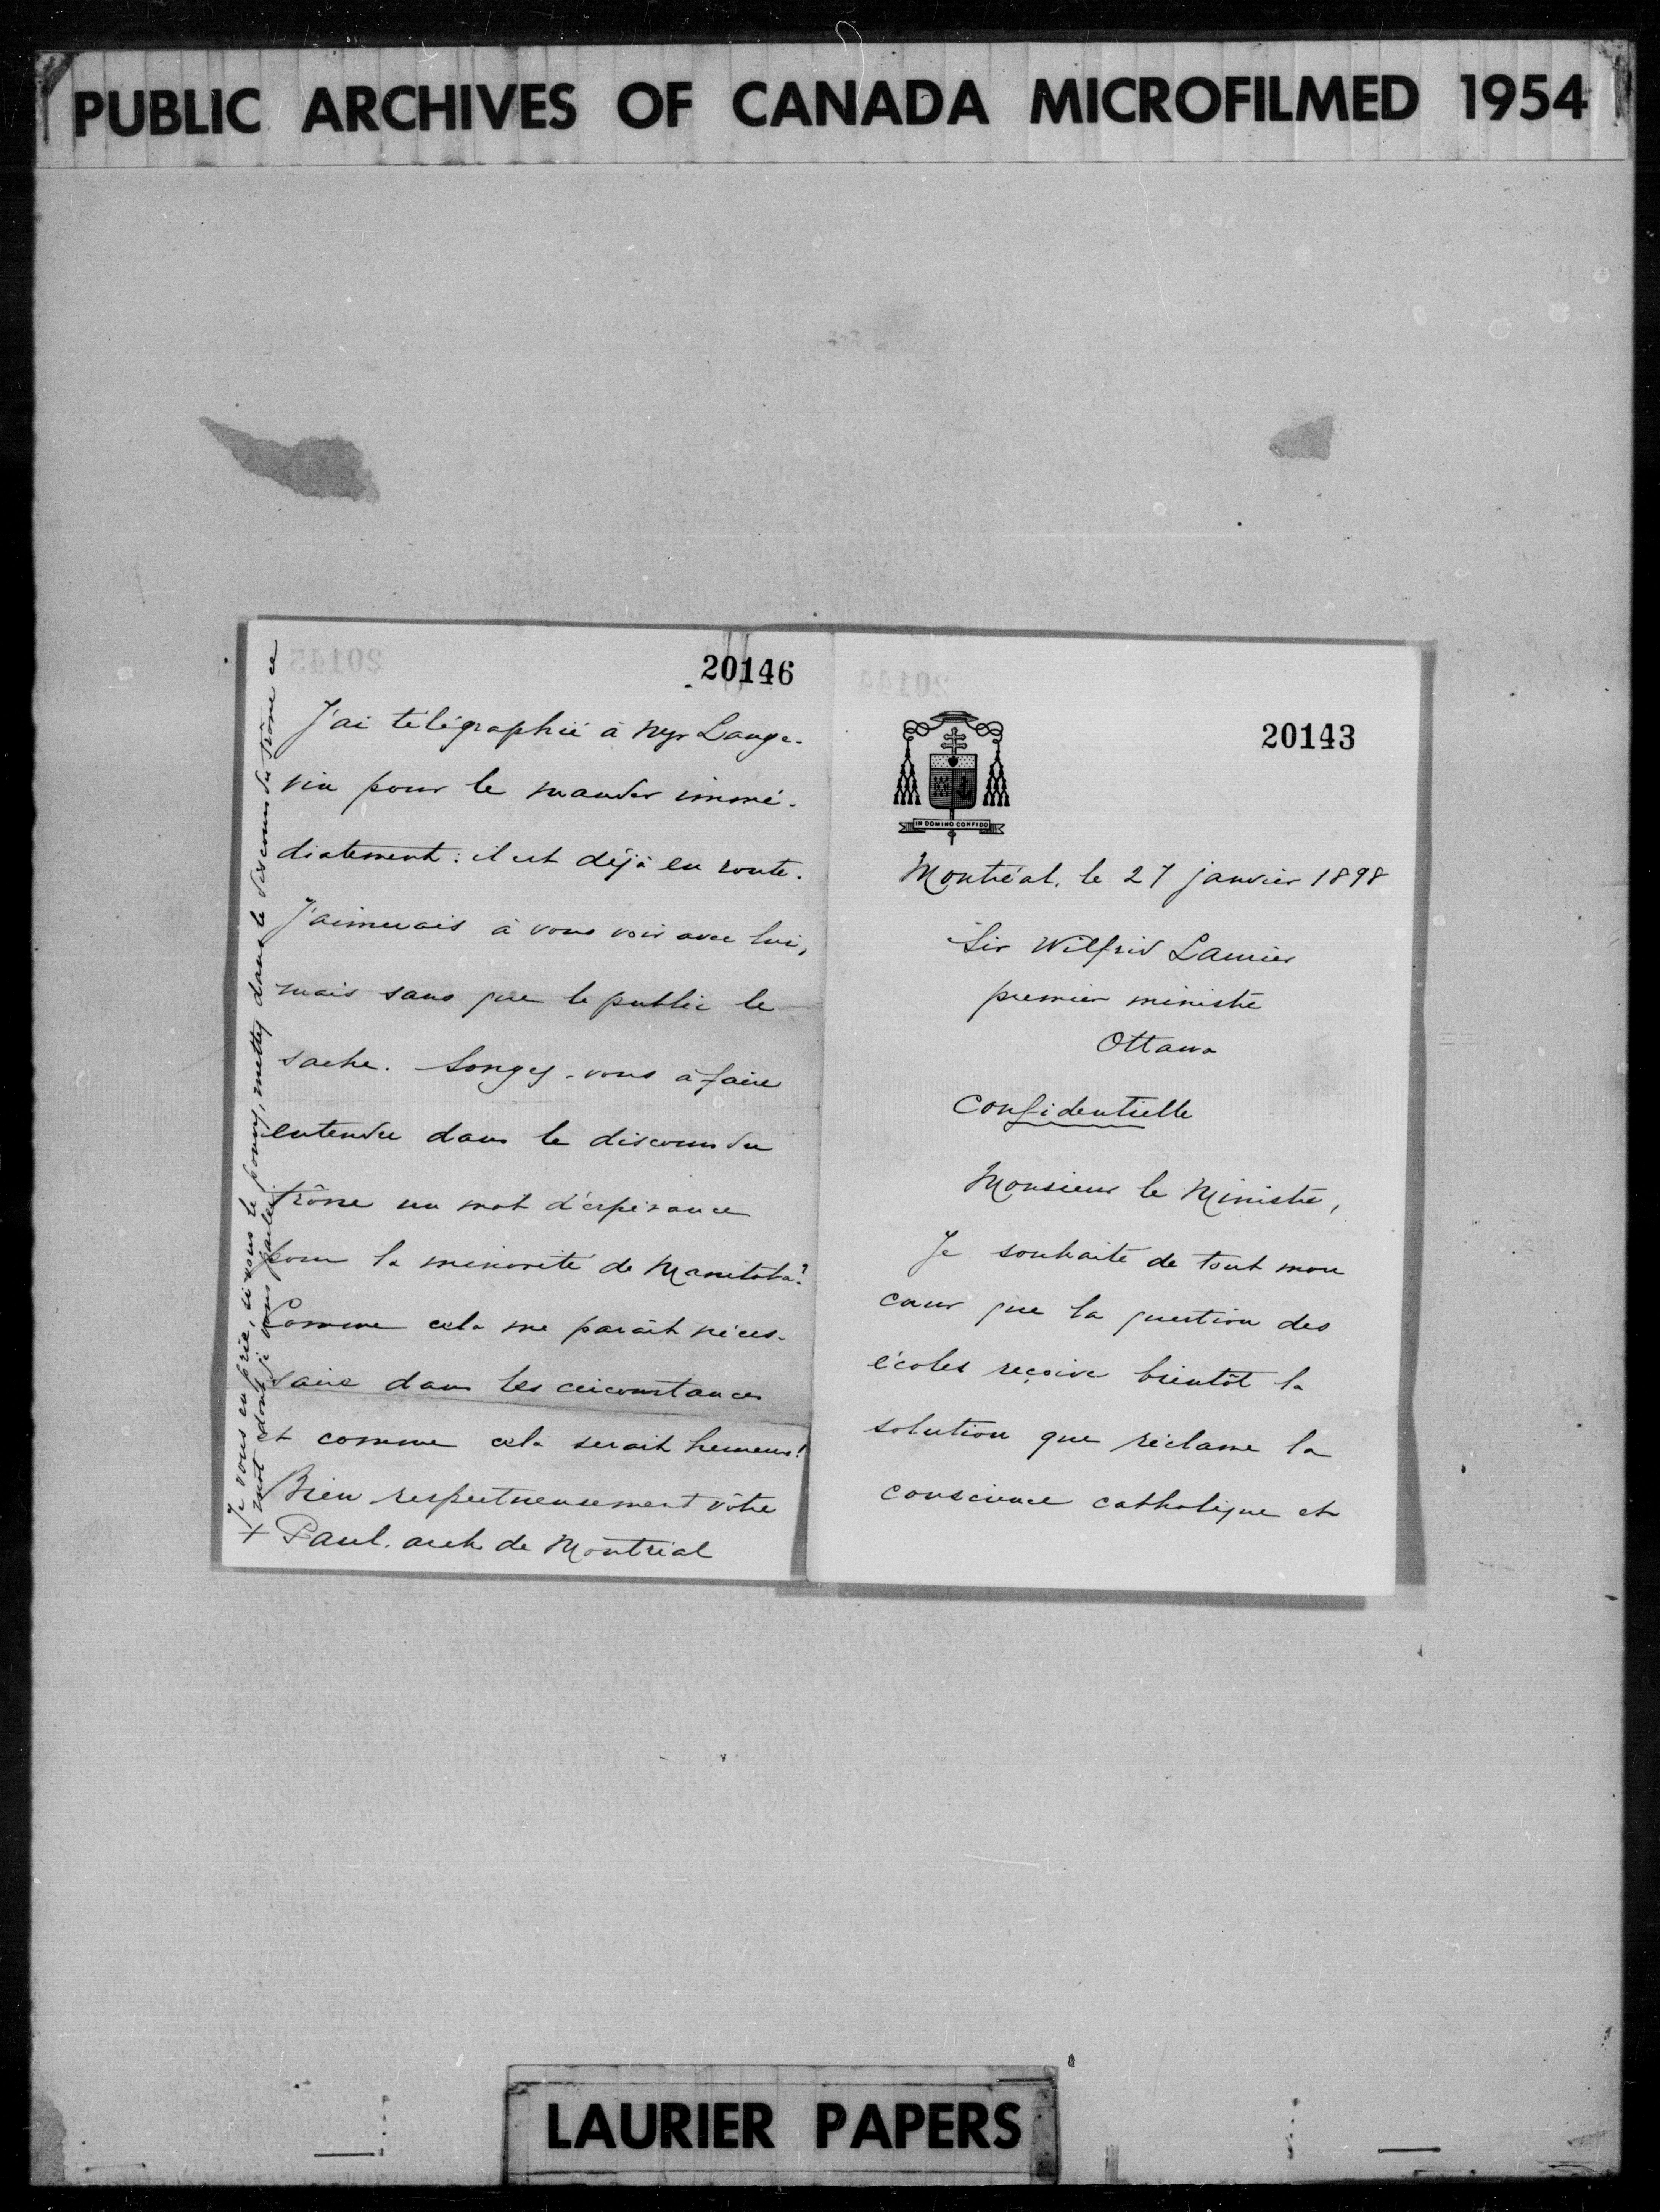 PUBLIC ARCHIVES OF CANADA MICROFILMED 1954
20146
J'ai télégraphié à Mgr Lange-
vin pour le mander immé-
diatement : il est déjà en route.
J'aimerais à vous voir avec lui,
mais sans que le public le
sache. Songez-vous à faire
entendre dans le discours du
trône un mot d'espérance
pour la minorité de Manitoba?
Comme cela me paraît néces-
saire dans les circonstances
et comme cela serait heureux!
Bien respectueusement vôtre
+ Paul. arch de Montréal
Je vous en prie, si vous le pouvez, mettez dans le discours du trône ce
mot dont je vous parle
20145
20144
20143
IN DOMINO CONFIDO
Montréal, le 27 janvier 1898
Sir Wilfrid Laurier
premier ministre
Ottawa
Confidentielle
Monsieur le Ministre,
Je souhaite de tout mon
cœur que la question des
écoles reçoive bientôt la
solution que réclame la
conscience catholique et
LAURIER PAPERS